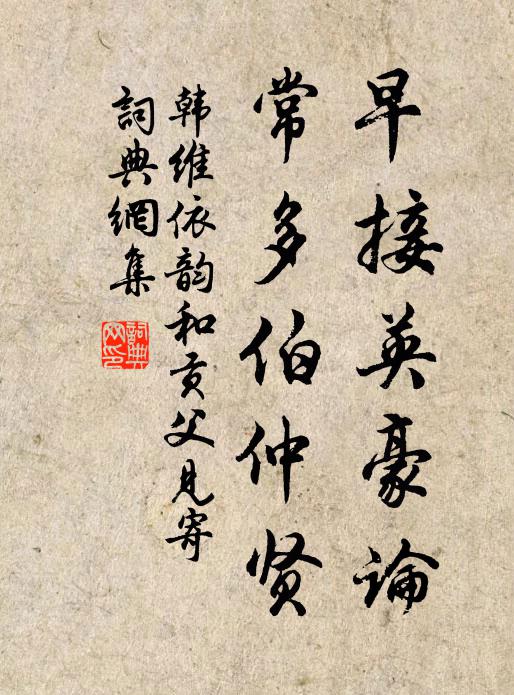 早接英豪論
常多伯仲贤
韩维依韵和贡父見寄
詞典網集
詞典網印